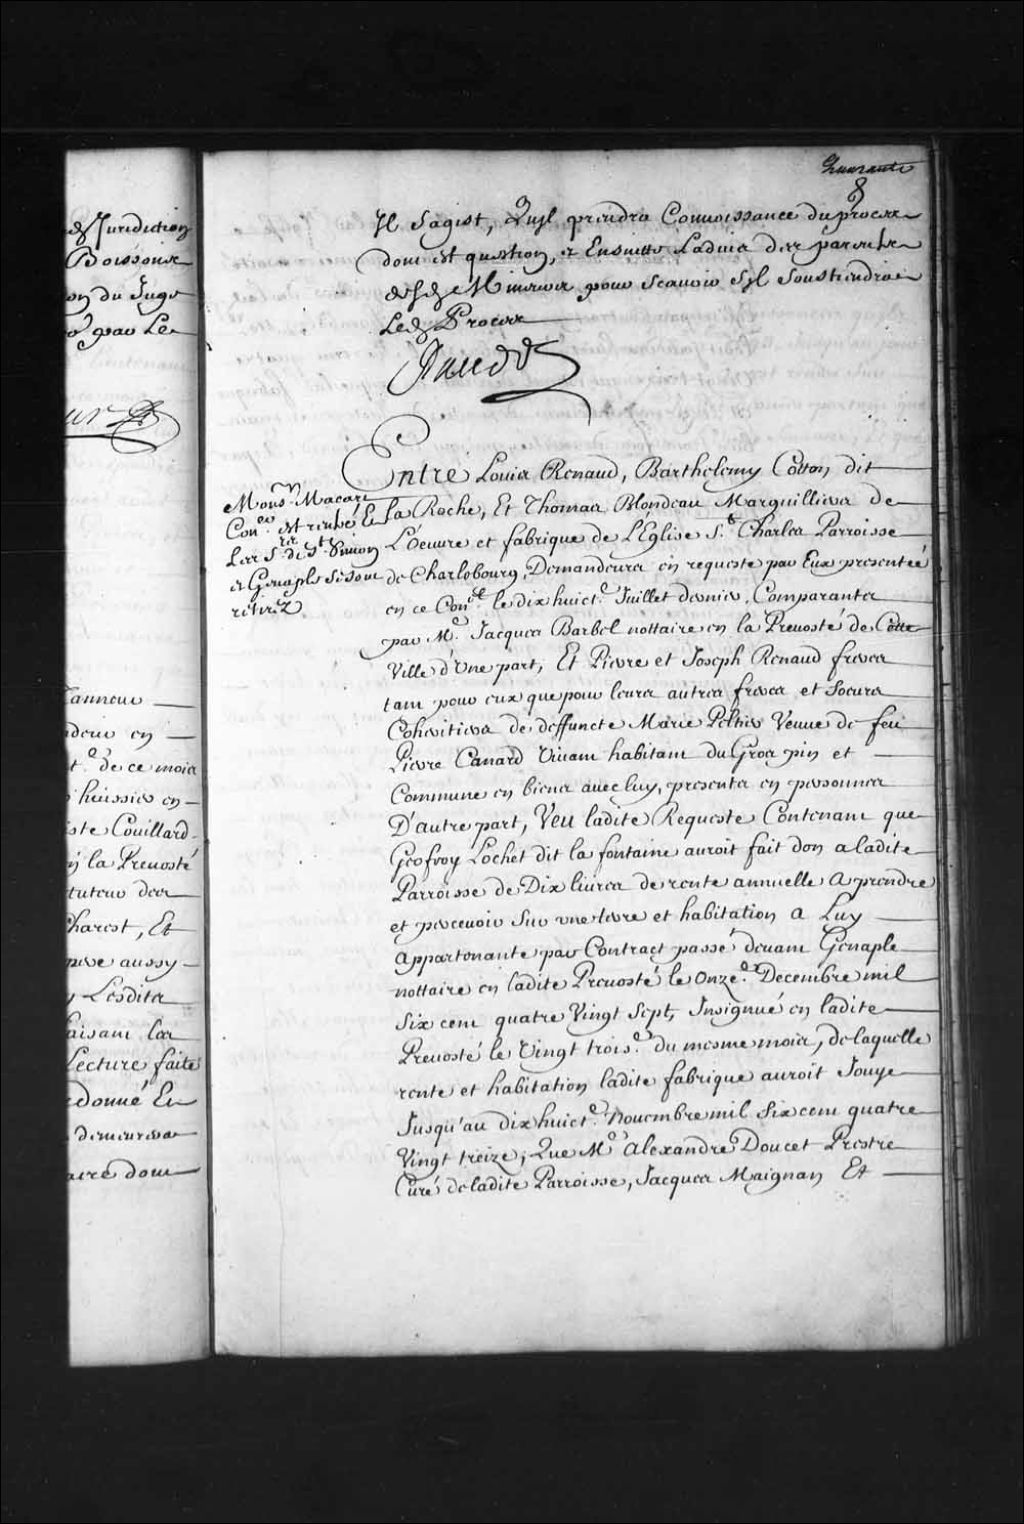 Quarante
8
Il s'agist, Quil prendra Connoissance du proces
dont est question, et Ensuitte L'aduis des parents
desd Mineurs pour scauoir s'il soustiendra
Led Proces
Entre Louis Renaud, Barthelemy Cotton dit
la Roche, Et Thomas Blondeau Marguilliers de
L'oeuure et fabrique de L'Eglise St Charles Parroisse
de Charlebourg, Demandeurs en requeste par Eux presentée
en ce Conel le dix huict.e Juillet dernier, Comparants
par Me Jacques Barbel nottaire en la Preuosté de Cette
Ville d'Vne part, Et Pierre et Joseph Renaud freres
tant pour eux que pour leurs autres freres et Soeurs
Coheritiers de deffuncte Marie Peltier Veuue de feu
Pierre Canard Viuant habitant du Gros pin et
Commune en biens auec luy, presents en personnes
D'autre part, Veu ladite Requeste Contenant que
Geofroy Lochet dit la fontaine auroit fait don a ladite
Parroisse de Dix liures de rente annuelle A prendre
et perceuoir Sur vne terre et habitation a Luy
Appartenante par Contract passé deuant Genaple
nottaire en ladite Preuosté le Onze.e Decembre mil
Six cent quatre Vingt Sept, Insignué en ladite
Preuosté le Vingt trois.e du mesme mois, de laquelle
rente et habitation ladite fabrique auroit Jouye
Jusqu'au dix huict.e nouembre mil Six cent quatre
Vingt treize; Que Me Alexandre Doucet Prestre
Curé de ladite Parroisse, Jacques Maignan Et
Monsr Macart
Coner est rentré Et
Les Srs de St Simon
et Genaple Se sont
retirez
d Juridiction
Boissons
on du Juge
par Le
anneur
ndeur en
t.e de ce mois
huissier en
ste Couillard
la Preuosté
tuteur des
harest, Et
pere aussy
Lesdits
aisant les
Lecture faite
donné En
demeurera
aire dont